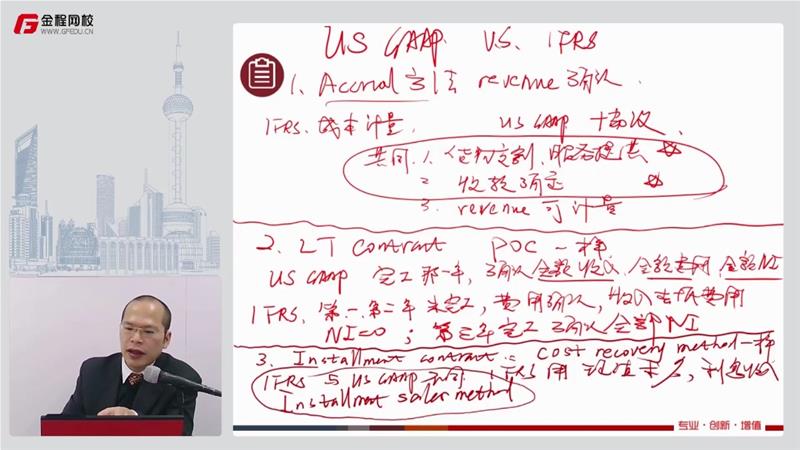 金程网校
WWW.GFEDU.CN
US GAAP VS. IFRS
1. Accrual 会计 revenue 确认.
IFRS. 成本计量. US GAAP
共同. 1. 货物交割、服务提供
2 收款确定
3. revenue 可计量
2. LT contract POC 一样
US GAAP 完工那一年, 确认全额收入、全额费用、全额NI
IFRS. 第一. 第二年未完工, 费用确认, 收入 费用
NI=0 ; 第三年完工确认全部NI
3. Installment contract : cost recovery method 一样
IFRS 与 US GAAP 不同 IFRS 用 现值, 利息收
Installment sales method
专业·创新·增值